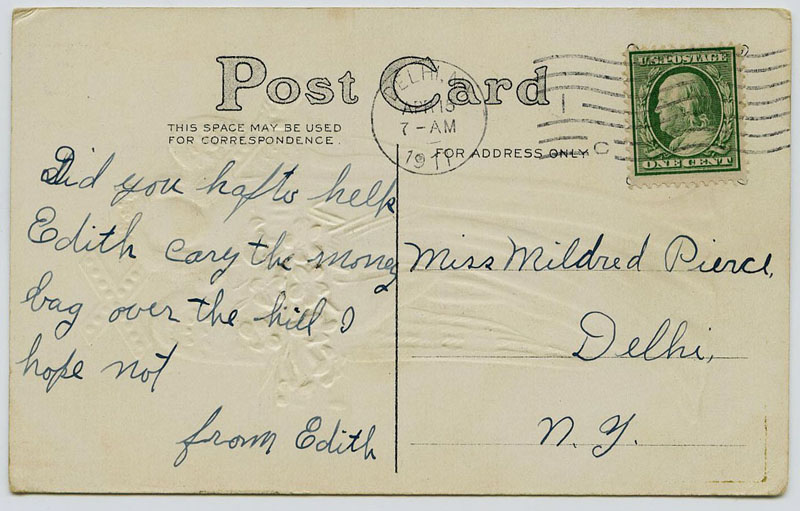 Post Card
THIS SPACE MAY BE USED
FOR CORRESPONDENCE.
FOR ADDRESS ONLY
DELHI, N.
APR 15
7 - AM
1911
U.S. POSTAGE
ONE CENT
Did you hafto help
Edith cary the money
bag over the hill I
hope not
from Edith
Miss Mildred Pierce,
Delhi,
N. Y.